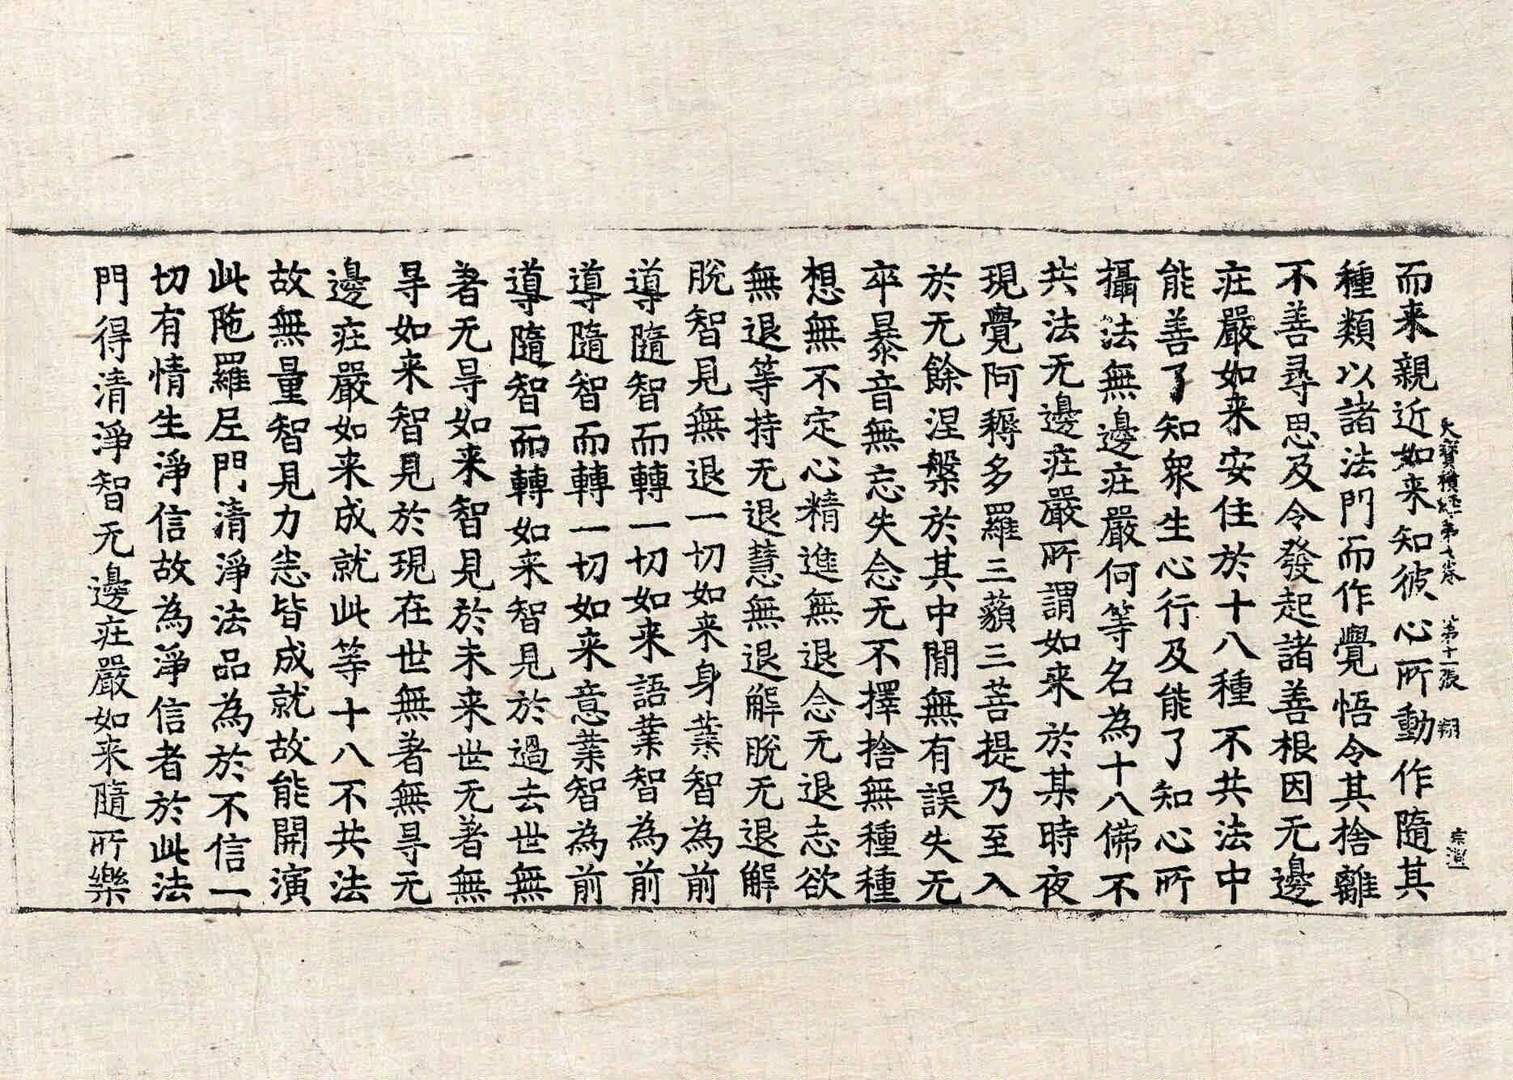 大寶積経第七卷 第十一張 翔
而来親近如来知彼心所動作隨其
種類以諸法門而作覺悟令其捨離
不善尋思及令發起諸善根因无邊
庄嚴如来安住於十八種不共法中
能善了知衆生心行及能了知心所
攝法無邊庄嚴何等名為十八佛不
共法无邊庄嚴所謂如来於某時夜
現覺阿耨多羅三藐三菩提乃至入
於无餘涅槃於其中閒無有誤失无
卒暴音無忘失念无不擇捨無種種
想無不定心精進無退念无退志欲
無退等持无退慧無退解脫无退解
脫智見無退一切如来身業智為前
導隨智而轉一切如来語業智為前
導隨智而轉一切如来意業智為前
導隨智而轉如来智見於過去世無
著无㝵如来智見於未来世无著無
㝵如来智見於現在世無著無㝵无
邊庄嚴如来成就此等十八不共法
故無量智見力悉皆成就故能開演
此陁羅尼門清淨法品為於不信一
切有情生淨信故為淨信者於此法
門得清淨智无邊庄嚴如来隨所樂